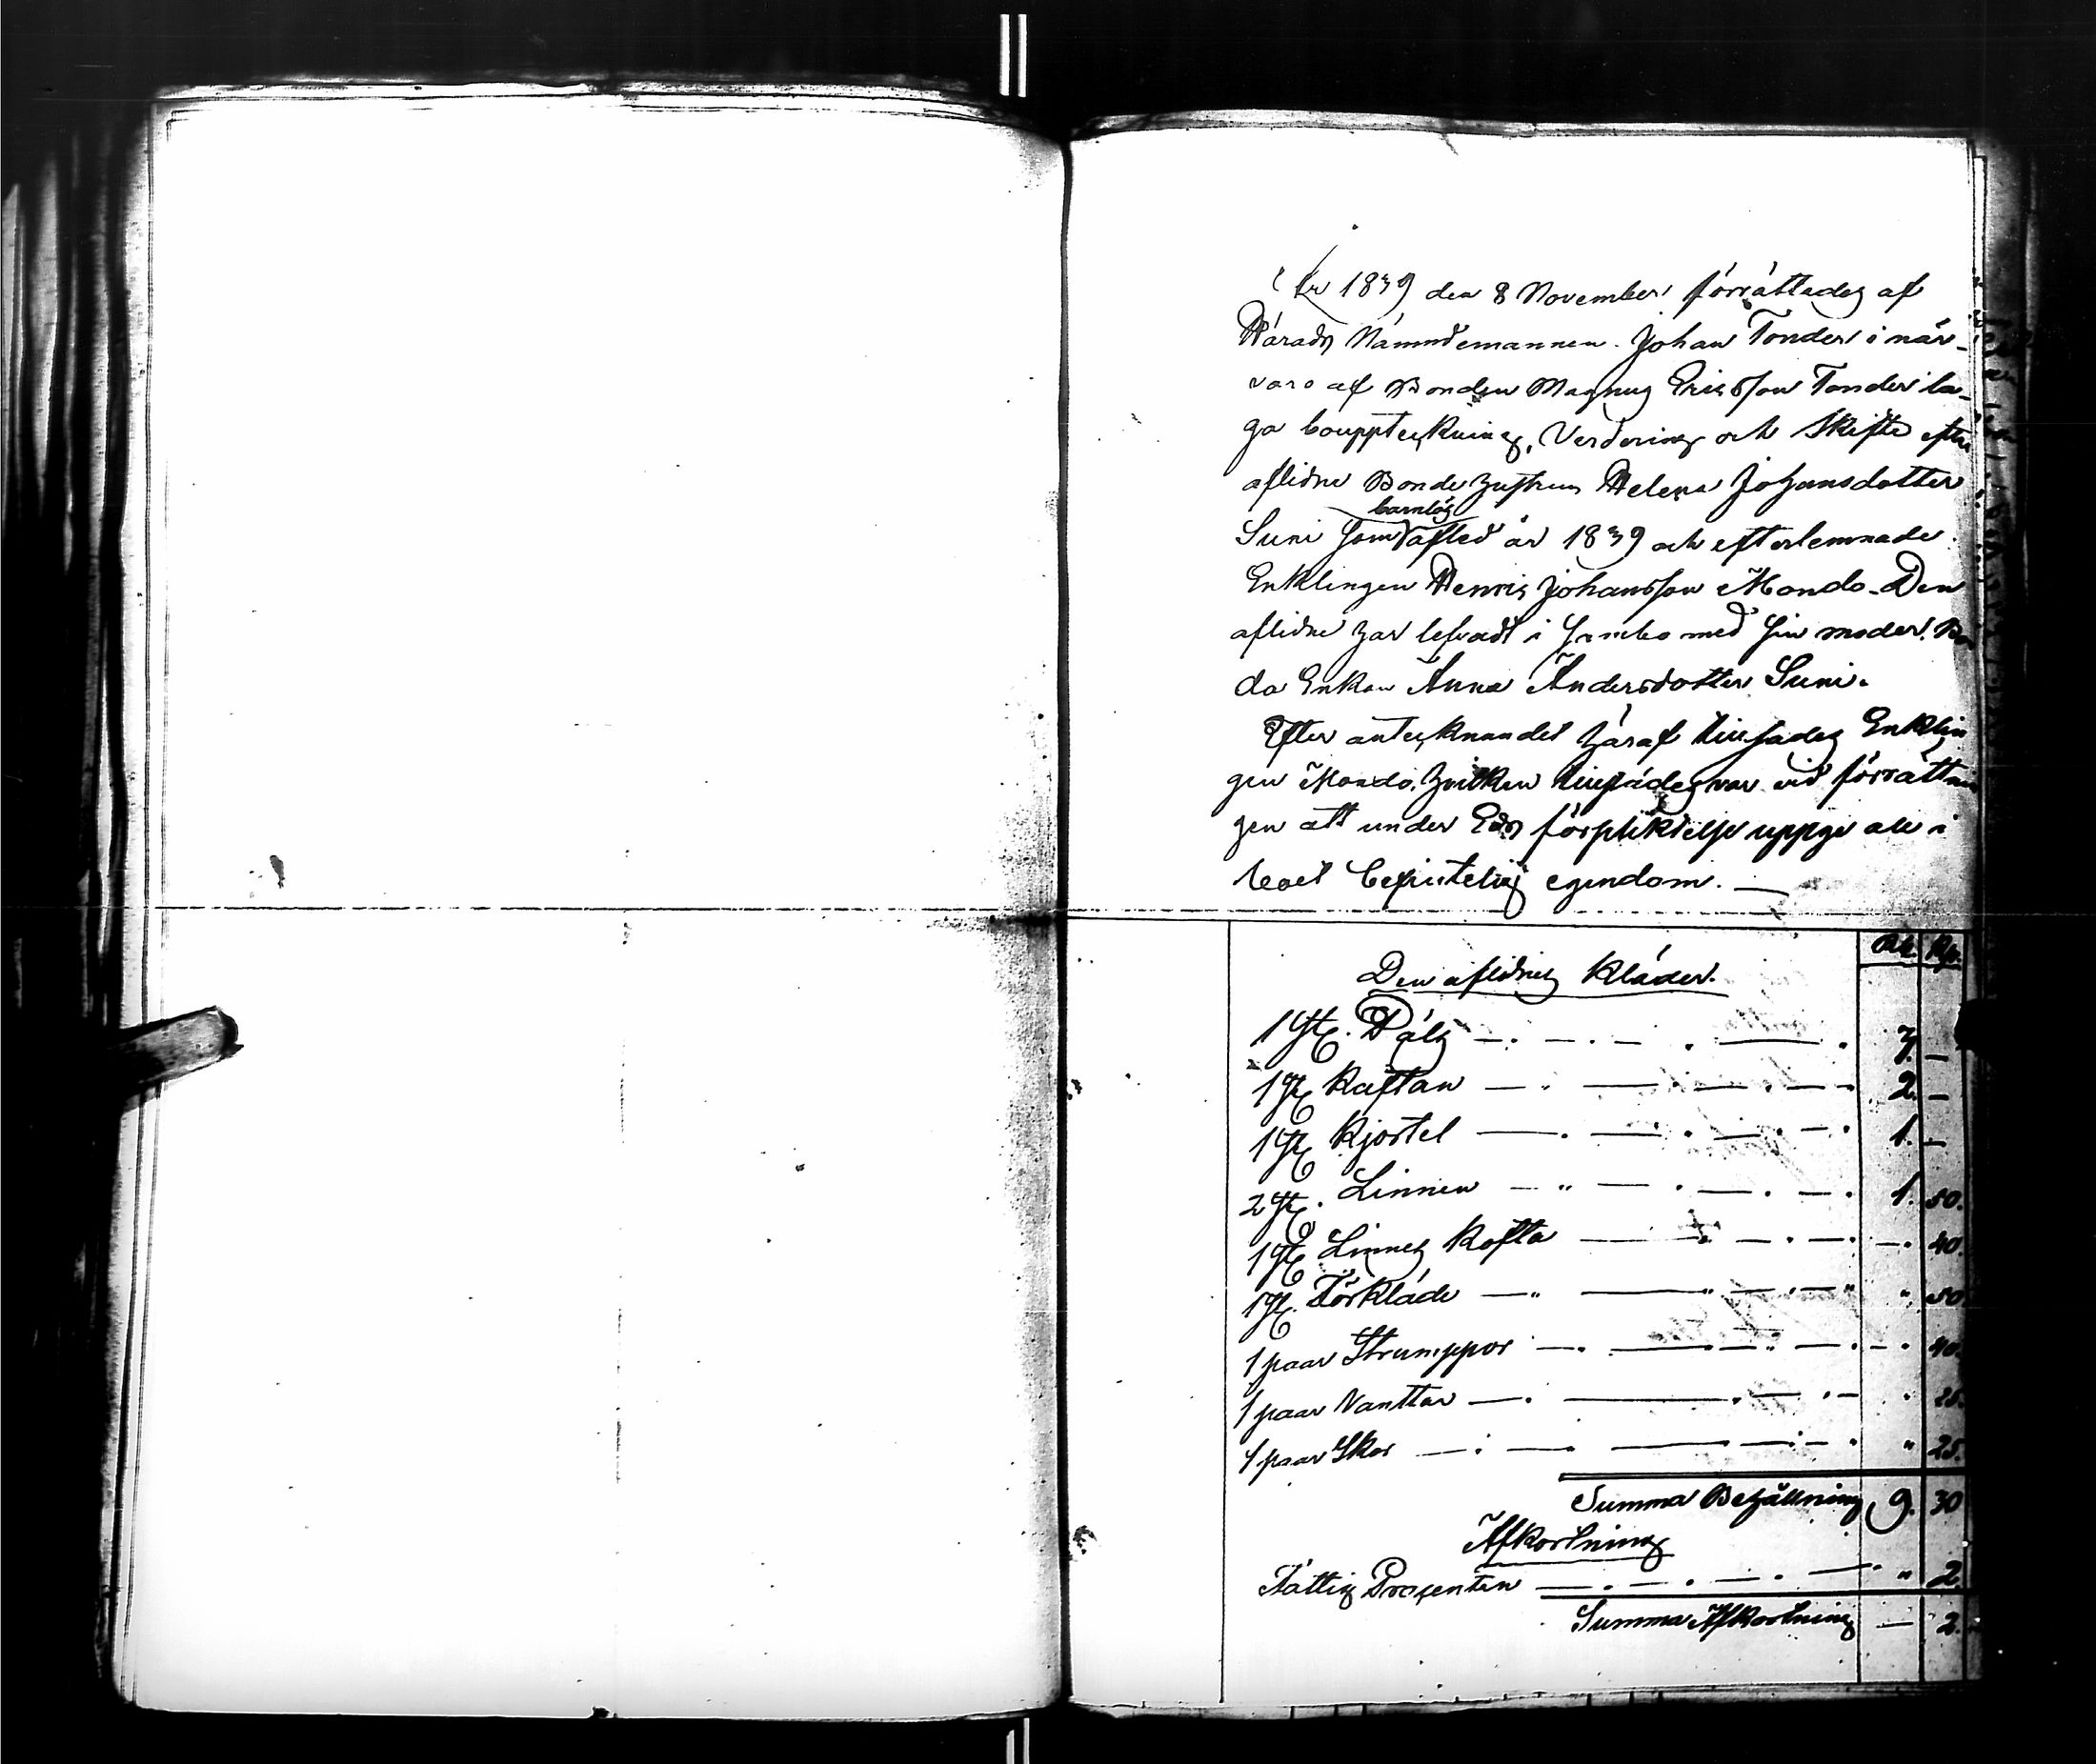 År 1839 den 8 November förrättades af
Härads Nämndemannen Johan Tonder i när-
varo af Bonden Magnus Ericsson Tonder la-
ga bouppteckning, Verdering och Skifte efter
aflidne Bonde hustrun Helena Johansdotter
barnlös
Suni som afled år 1839 och efterlemnade
Enklingen Henric Johansson Mondo. Den
aflidne har lefvadt i sambo med sin moder, Bon
da Enkan Anna Andersdotter Suni.
Efter antecknandet häraf tillsades Enklin
gen Mondo, hvilken tillstädes var vid förrättnin
gen att under Eds förpliktelse uppge all i
boet befintelig egendom. —
Rb. Kp.
Den aflidnes Kläder.
1 st. Päls 3. —
1 st. Kaftan 2. —
1 st. Kjortel 1. —
2 st. Linnen 1. 50.
1 st. Linnes Kofta —. 40.
1 st. Förkläde " 50
1 paar Strumppor —. 40.
1 paar Vanttar . 25.
1 paar Skor " 25.
Summa Behållning 9. 30
Afkortning
Fattig Procenten " 2
Summa Afkortning — 2.